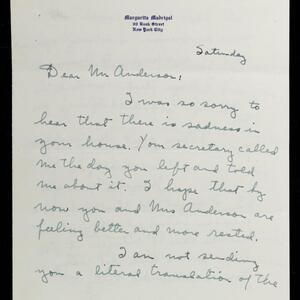 Margarita Madrigal
98 Bank Street
New York City
Saturday
Dear Mr Anderson:
I was so sorry to
hear that there is sadness in
your house. Your secretary called
me the day you left and told
me about it. I hope that by
now you and Mrs Anderson are
feeling better and more rested.
I am not sending
you a literal translation of the